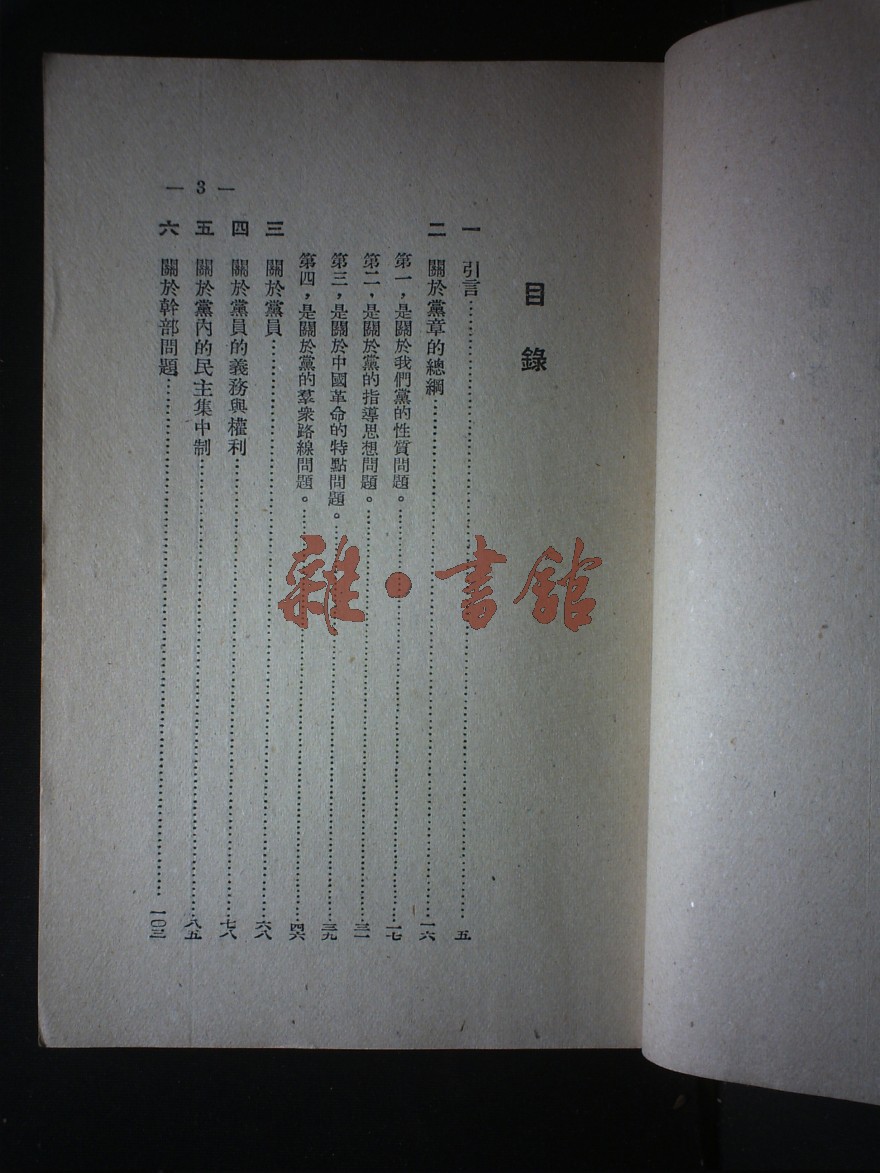 目錄
一 引言……五
二 關於黨章的總綱……一六
第一，是關於我們黨的性質問題。……一七
第二，是關於黨的指導思想問題。……三一
第三，是關於中國革命的特點問題。……三九
第四，是關於黨的羣衆路線問題。……四六
三 關於黨員……六八
四 關於黨員的義務與權利……七八
五 關於黨內的民主集中制……八五
六 關於幹部問題……一〇三
— 3 —
雜·書館